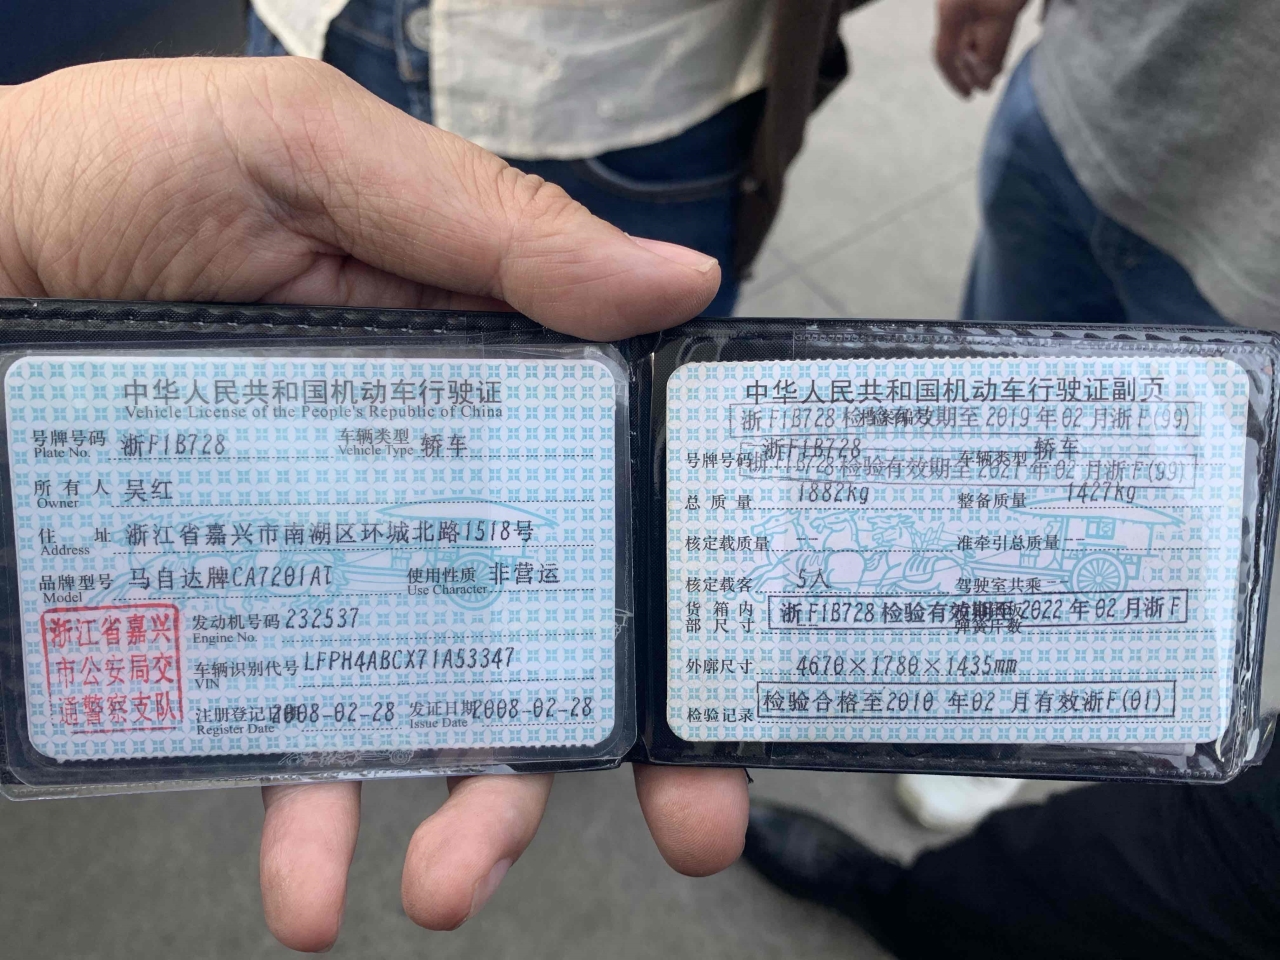 中华人民共和国机动车行驶证
Vehicle License of the People's Republic of China
号牌号码 浙F1B728 车辆类型 轿车
Plate No. Vehicle Type
所有人 吴红
Owner
住址 浙江省嘉兴市南湖区环城北路1518号
Address
品牌型号 马自达牌CA7201AT 使用性质 非营运
Model Use Character
浙江省嘉兴
市公安局交
通警察支队
发动机号码 232537
Engine No.
车辆识别代号 LFPH4ABCX71A53347
VIN
注册登记日期 2008-02-28 发证日期 2008-02-28
Register Date Issue Date
中华人民共和国机动车行驶证副页
浙F1B728 检验有效期至2019年02月浙F(99)
号牌号码 浙F1B728 车辆类型 轿车
浙F1B728 检验有效期至2021年02月浙F(99)
总质量 1882kg 整备质量 1427kg
核定载质量 -- 准牵引总质量 --
核定载客 5人 驾驶室共乘 --
货箱内
部尺寸
浙F1B728 检验有效期至2022年02月浙F
弹簧片数
外廓尺寸 4670×1780×1435mm
检验记录 检验合格至2010年02月有效浙F(01)